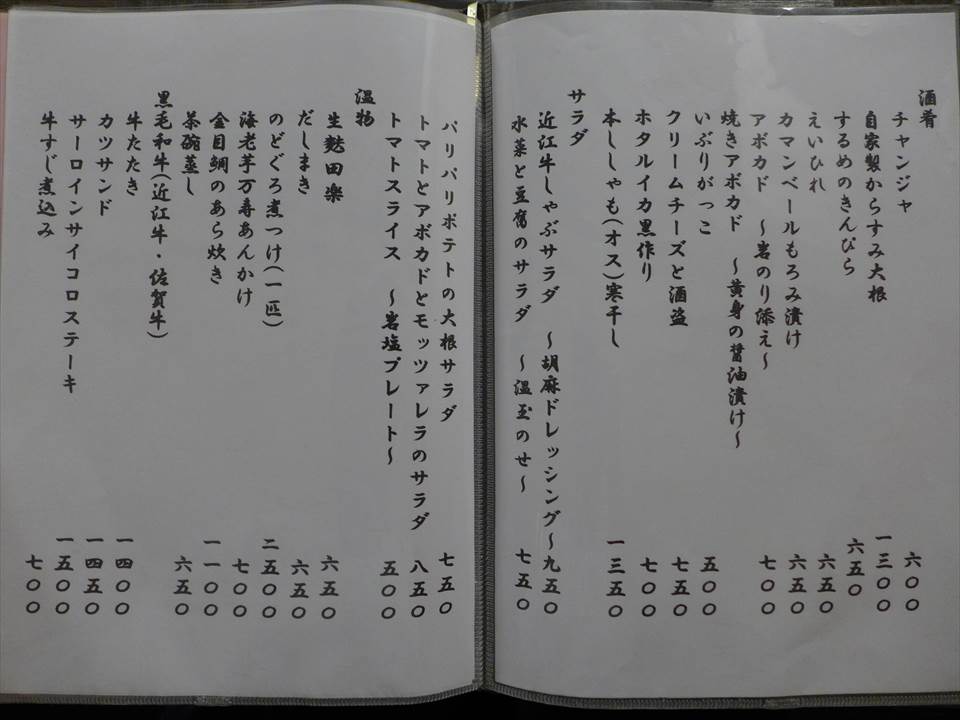 酒肴
チャンジャ 六〇〇
自家製からすみ大根 一三〇〇
するめのきんぴら 六五〇
えいひれ 六五〇
カマンベールもろみ漬け 六五〇
アボカド 〜岩のり添え〜 七〇〇
焼きアボカド 〜黄身の醤油漬け〜
いぶりがっこ 五〇〇
クリームチーズと酒盗 七五〇
ホタルイカ黒作り 七〇〇
本ししゃも(オス)寒干し 一三五〇
サラダ
近江牛しゃぶサラダ 〜胡麻ドレッシング〜 九五〇
水菜と豆腐のサラダ 〜温玉のせ〜 七五〇
パリパリポテトの大根サラダ 七五〇
トマトとアボカドとモッツァレラのサラダ 八五〇
トマトスライス 〜岩塩プレート〜 五〇〇
温物
生麩田楽 六五〇
だしまき 六五〇
のどぐろ煮つけ(一匹) 二五〇〇
海老芋万寿あんかけ 七〇〇
金目鯛のあら炊き 一一〇〇
茶碗蒸し 六五〇
黒毛和牛(近江牛・佐賀牛)
牛たたき 一四〇〇
カツサンド 一四五〇
サーロインサイコロステーキ 一五〇〇
牛すじ煮込み 七〇〇